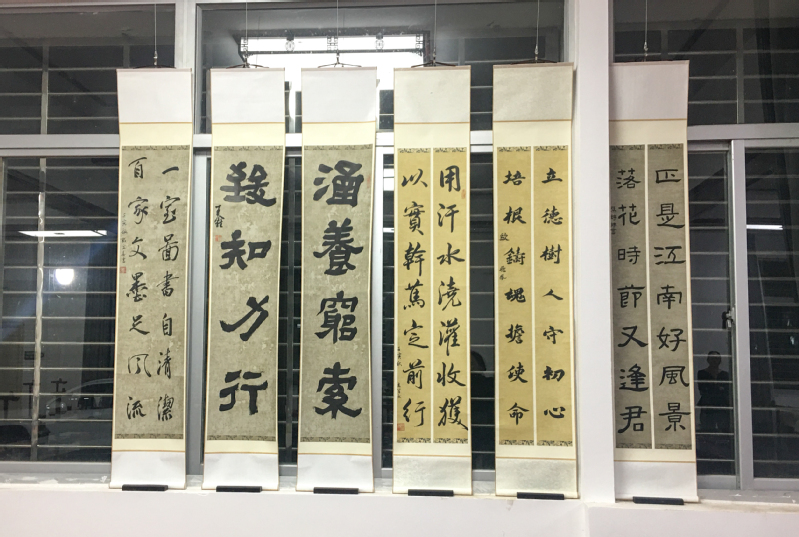 正是江南好風景
落花時節又逢君
立徳樹人守初心
培根鑄魂擔使命
用汗水澆灌收獲
以實幹篤定前行
涵養窮索
致知力行
一室圖書自清潔
百家文墨足風流